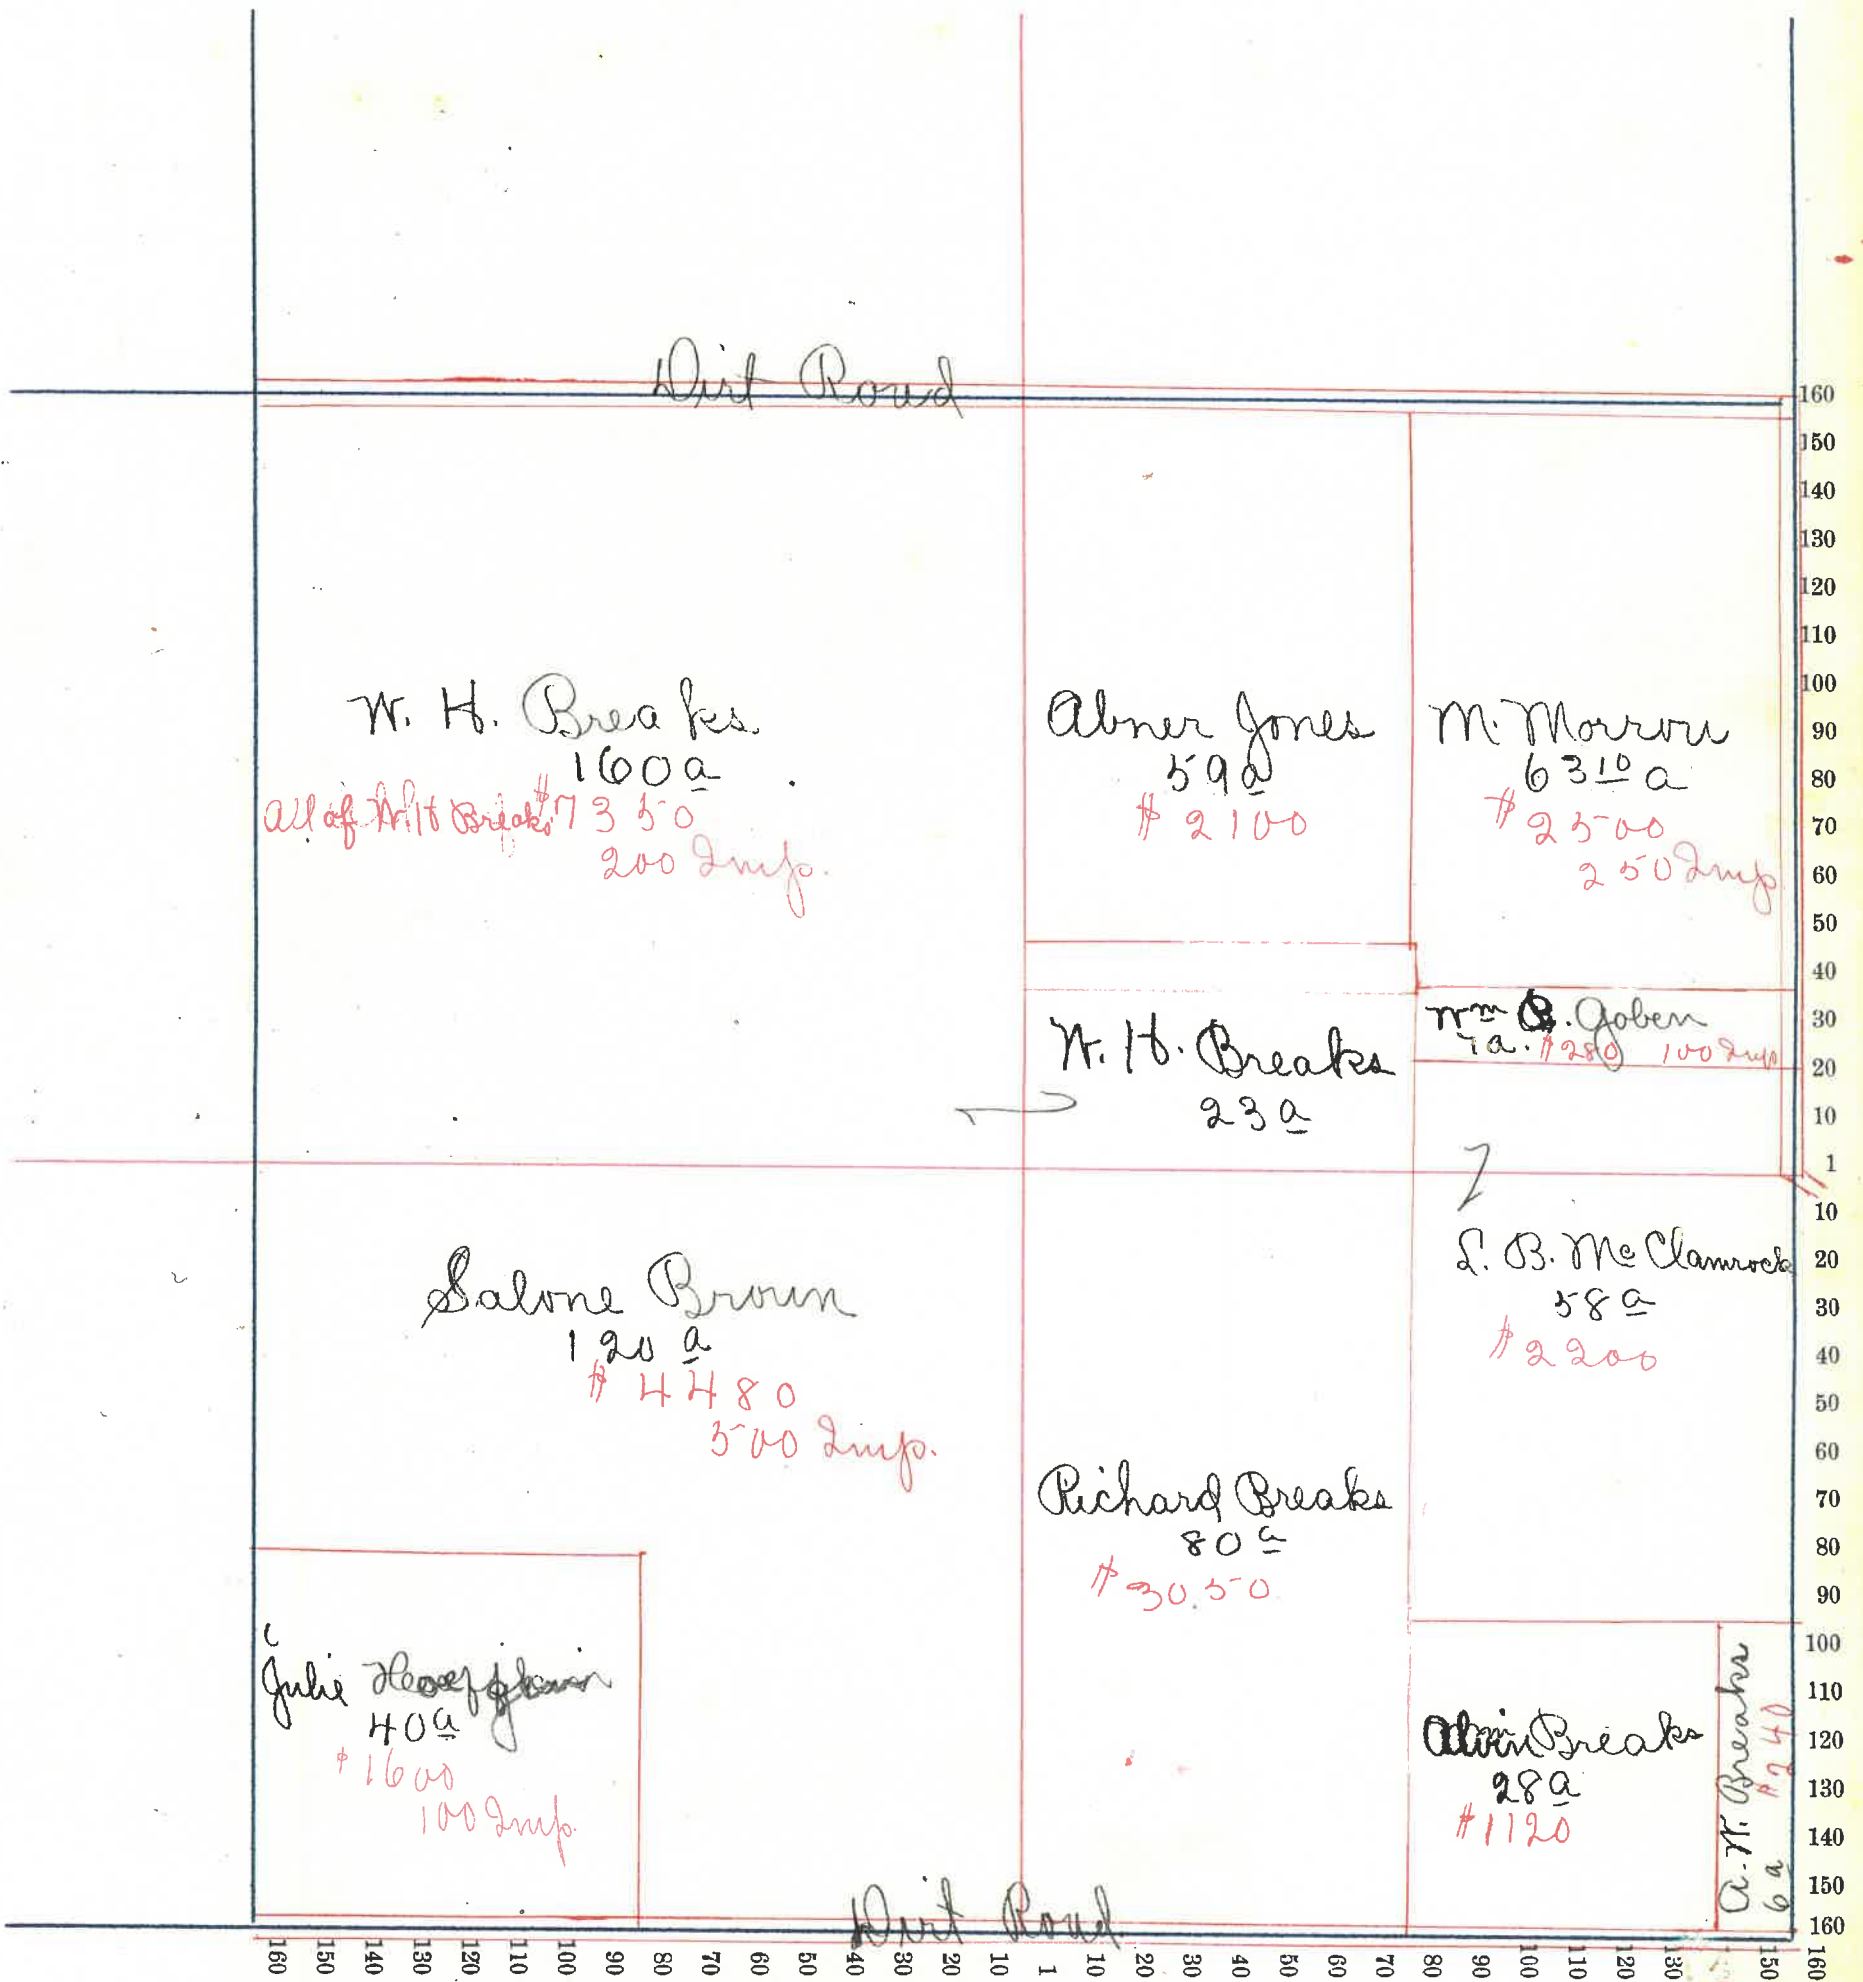 Dirt Road
W. H. Breaks.
160 a
All of W. H Breaks $7350
200 Imp.
Abner Jones
59 a
$2100
M. Morrow
63 10 a
$2500
250 Imp
W. H. Breaks
23 a
Wm B. Goben
7 a. $280 100 Imp
Salone Brown
120 a
$4480
500 Imp.
L. B. Mc Clamrock
58 a
$2200
Richard Breaks
80 a
$3050
Julie
40 a
$1600
100 Imp.
Alvin Breaks
28 a
$1120
A. W. Breaks
6 a $240
Dirt Road
160
150
140
130
120
110
100
90
80
70
60
50
40
30
20
10
1
10
20
30
40
50
60
70
80
90
100
110
120
130
140
150
160
160 150 140 130 120 110 100 90 80 70 60 50 40 30 20 10 1 10 20 30 40 50 60 70 80 90 100 110 120 130 150 160